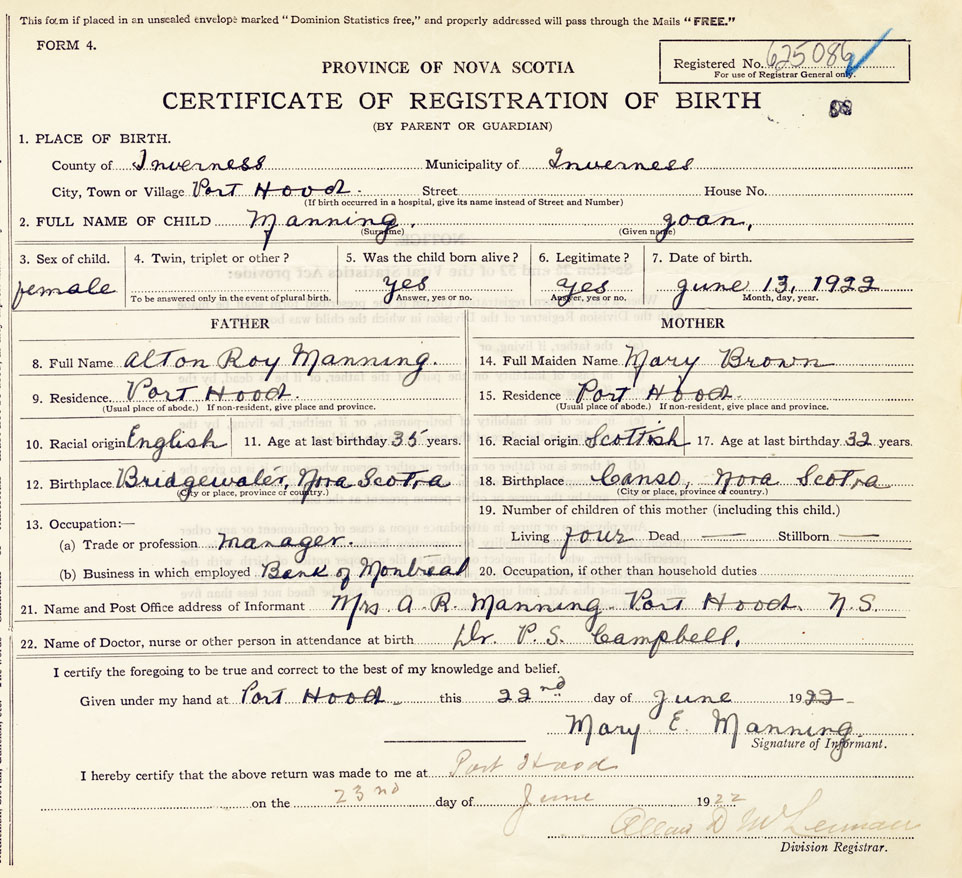 This form if placed in an unsealed envelope marked "Dominion Statistics free," and properly addressed will pass through the Mails "FREE."
FORM 4.
Registered No. 625086
For use of Registrar General only.
PROVINCE OF NOVA SCOTIA
CERTIFICATE OF REGISTRATION OF BIRTH
(BY PARENT OR GUARDIAN)
1. PLACE OF BIRTH.
County of Inverness Municipality of Inverness
City, Town or Village Port Hood. Street House No.
(If birth occurred in a hospital, give its name instead of Street and Number)
2. FULL NAME OF CHILD Manning. Joan,
(Surname) (Given name)
3. Sex of child. 4. Twin, triplet or other? 5. Was the child born alive? 6. Legitimate? 7. Date of birth.
female yes yes June 13, 1922
To be answered only in the event of plural birth. Answer, yes or no. Answer, yes or no. Month, day, year.
FATHER MOTHER
8. Full Name Alton Roy Manning. 14. Full Maiden Name Mary Brown
9. Residence. Port Hood. 15. Residence Port Hood.
(Usual place of abode.) If non-resident, give place and province. (Usual place of abode.) If non-resident, give place and province.
10. Racial origin English 11. Age at last birthday 35 years. 16. Racial origin Scottish 17. Age at last birthday 32 years.
12. Birthplace Bridgewater, Nova Scotia 18. Birthplace Canso, Nova Scotia
(City or place, province or country.) (City or place, province or country.)
19. Number of children of this mother (including this child.)
13. Occupation:—
(a) Trade or profession manager. Living four Dead — Stillborn —
(b) Business in which employed Bank of Montreal 20. Occupation, if other than household duties
21. Name and Post Office address of Informant Mrs A. R. Manning. Port Hood. N.S.
22. Name of Doctor, nurse or other person in attendance at birth Dr. P. S. Campbell.
I certify the foregoing to be true and correct to the best of my knowledge and belief.
Given under my hand at Port Hood this 22nd day of June 1922
Mary E. Manning
Signature of Informant.
I hereby certify that the above return was made to me at Port Hood
on the 23nd day of June 1922
Allan D McLennan
Division Registrar.